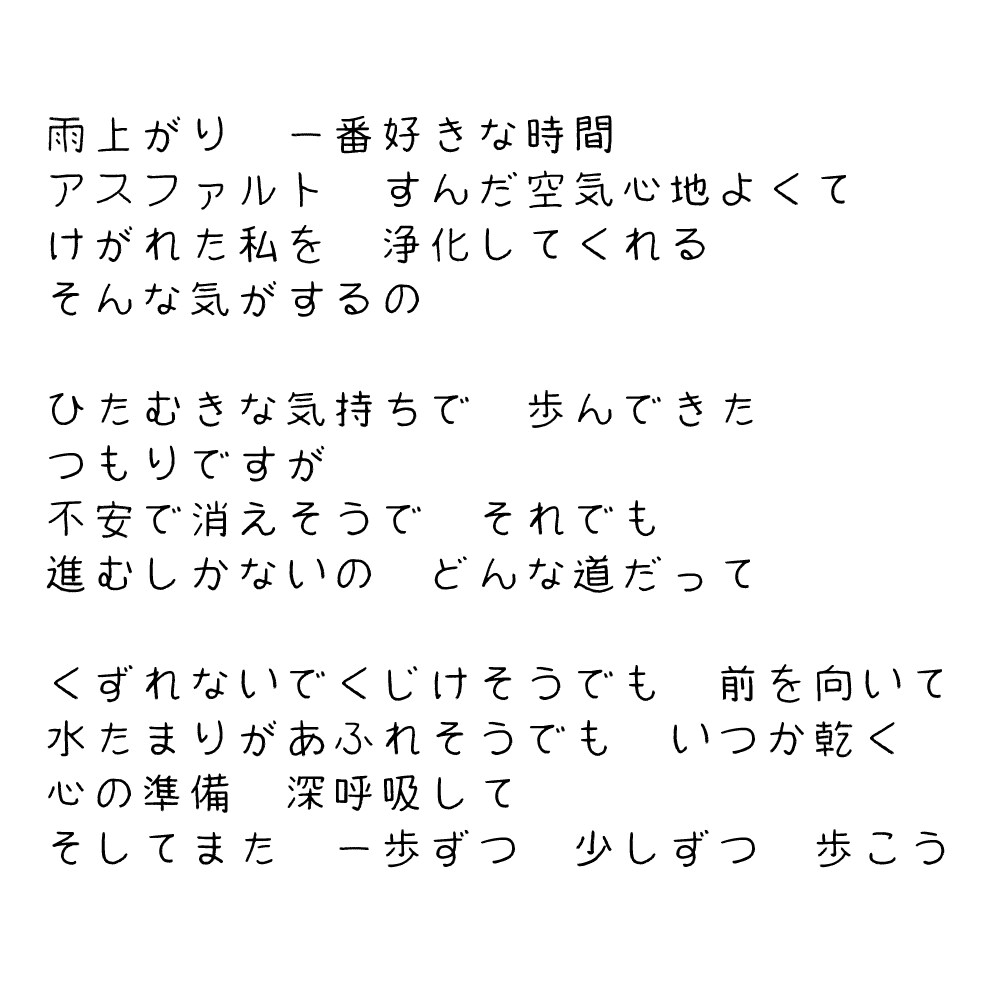 雨上がり　一番好きな時間
アスファルト　すんだ空気心地よくて
けがれた私を　浄化してくれる
そんな気がするの
ひたむきな気持ちで　歩んできた
つもりですが
不安で消えそうで　それでも
進むしかないの　どんな道だって
くずれないでくじけそうでも　前を向いて
水たまりがあふれそうでも　いつか乾く
心の準備　深呼吸して
そしてまた　一歩ずつ　少しずつ　歩こう